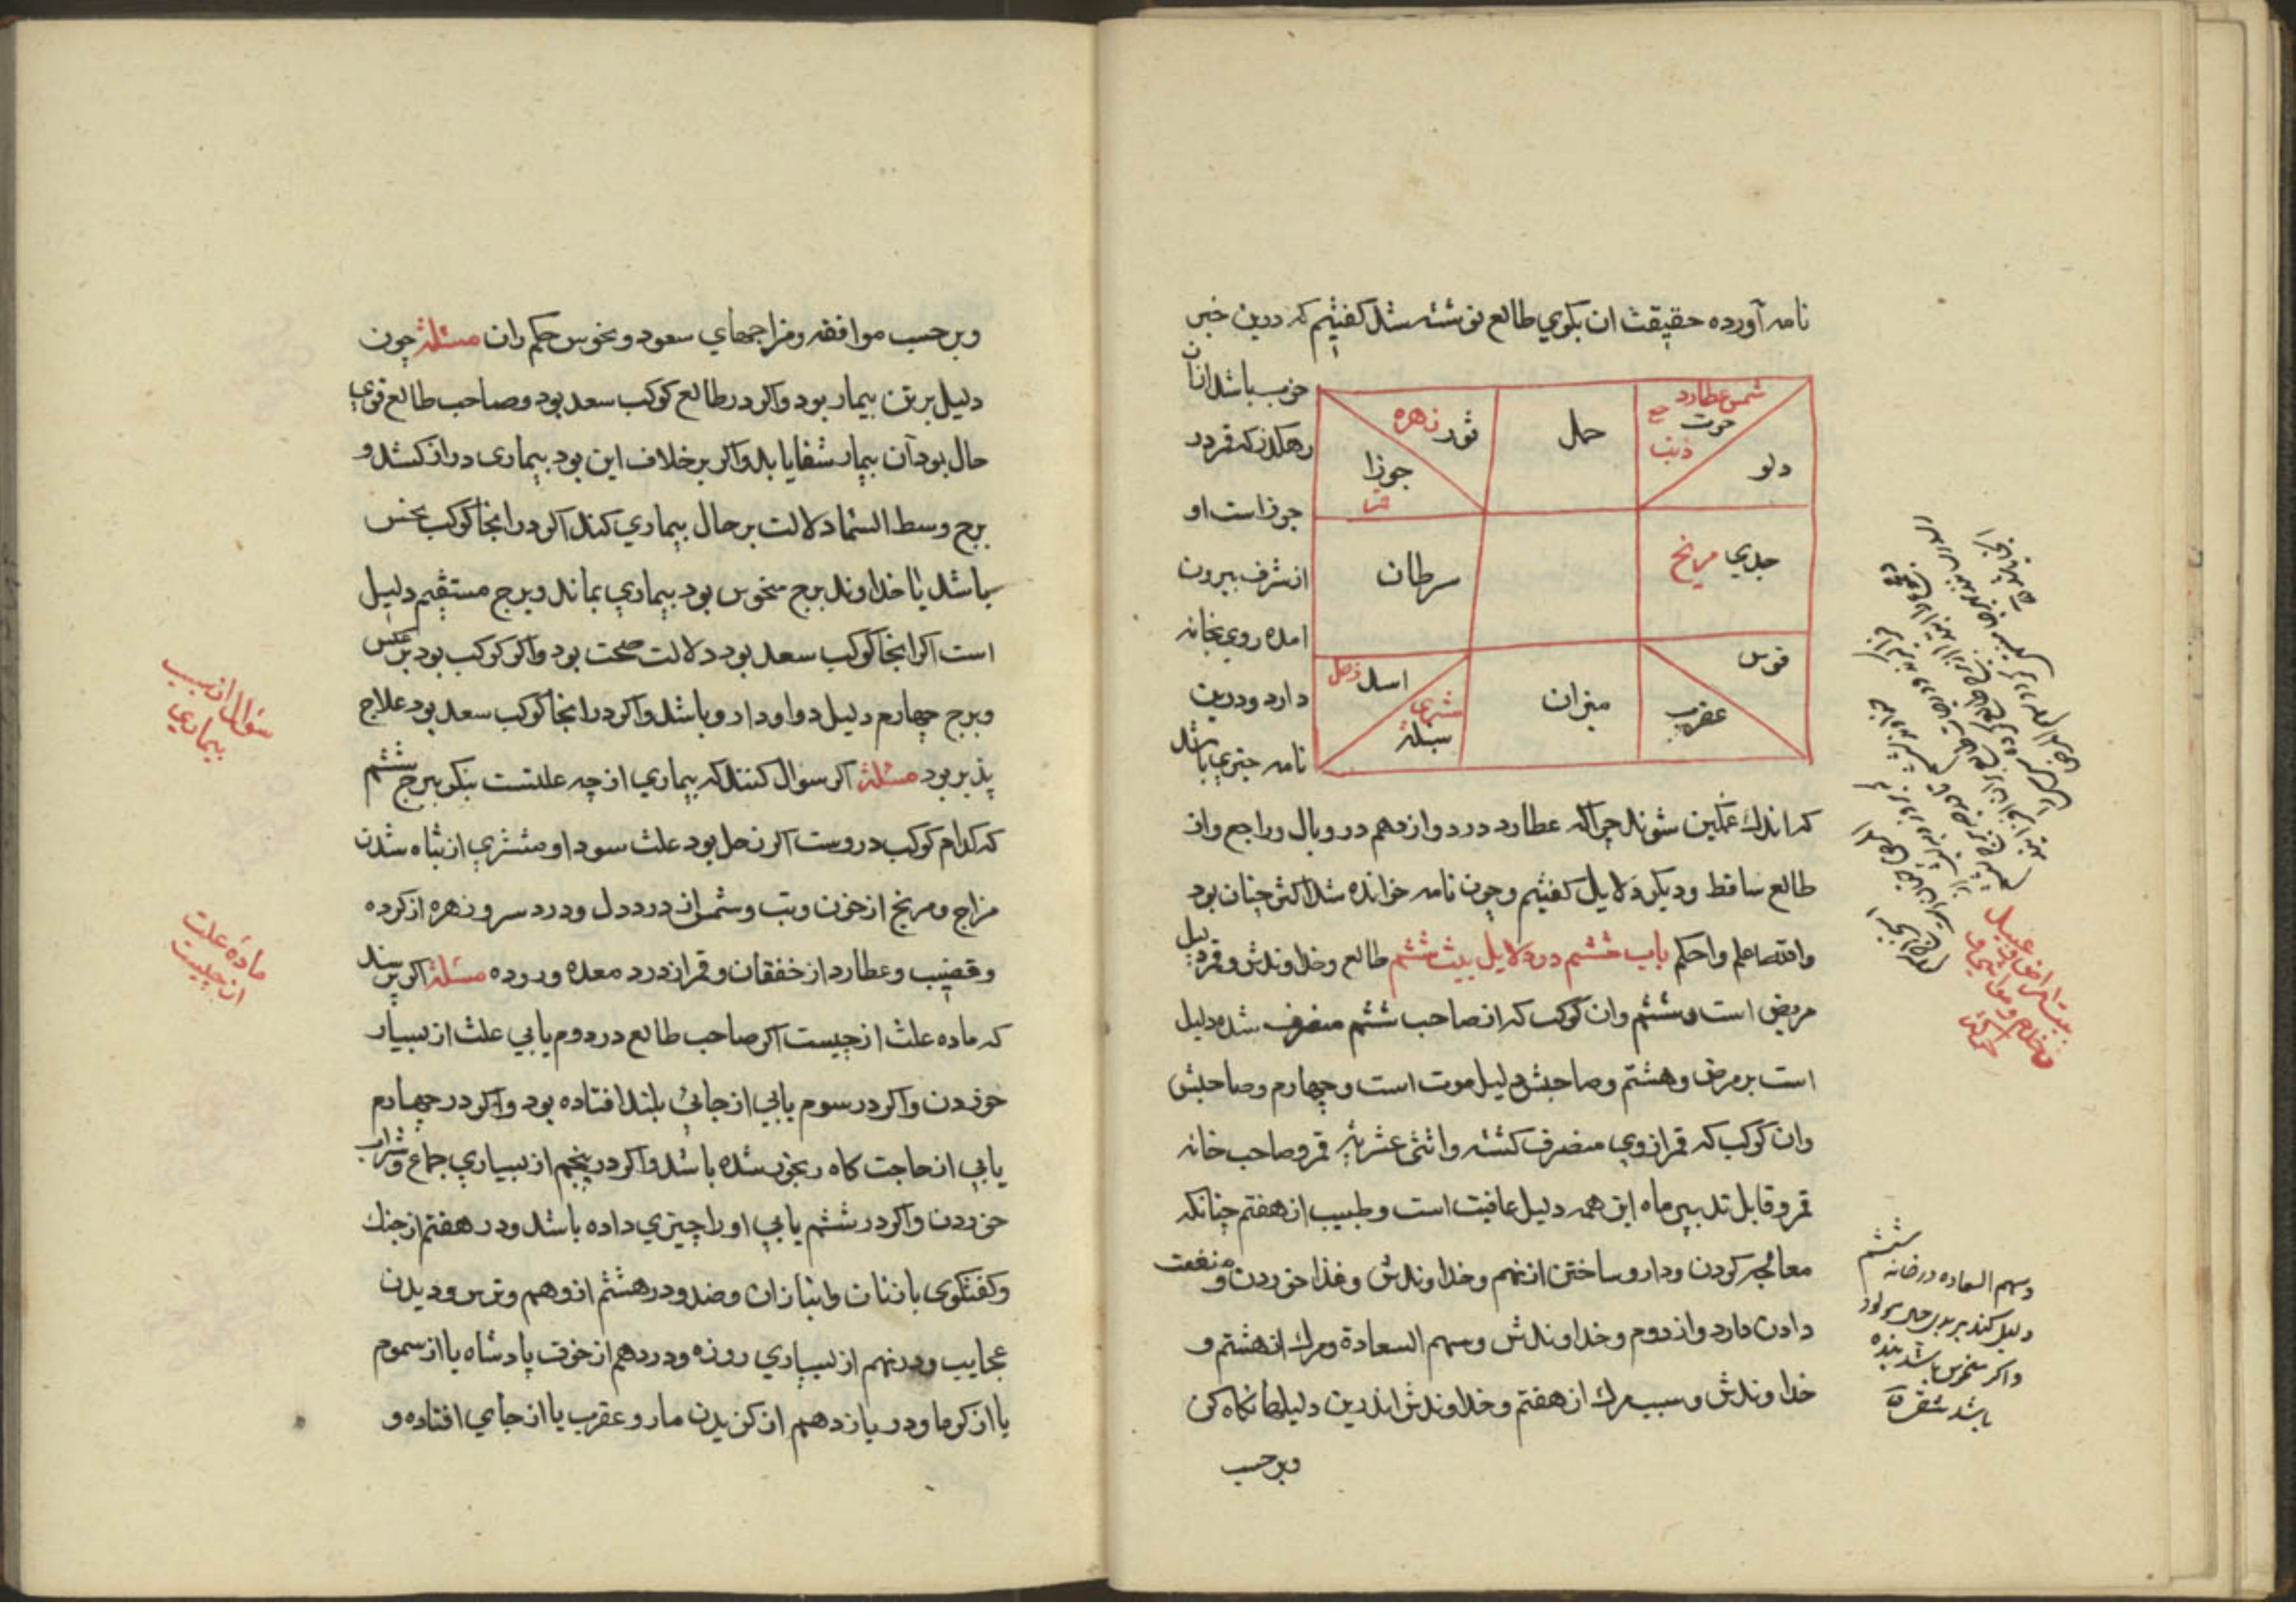 نامه آورده حقیقت ان بکوي طالع نوشته شد کفتیم که درین خبر
خوب باشد ازان
رهکذر که قمر در
جوزا است او
از شرف بیرون
امده روي بخانه
دارد و درین
نامه چیزي باشد
شمس عطارد
حوت
ذنب
دلو
حمل
ثور زهره
جوزا
قمر
جدي مریخ
سرطان
قوس
عقرب
میزان
اسد زحل
مشتری
سنبلة
که اندك غمکین شوند چرا که عطارد در دوازدهم در وبال و راجع و از
طالع ساقط و دیکر دلایل کفتیم و چون نامه خوانده شد اکثر چنان بود
والله اعلم واحکم باب ششم در دلایل بیت ششم طالع و خداوندش و قمر دلیل
مریض است و ششم و ان کوکب که از صاحب ششم منصرف شده دلیل
است بر مرض و هشتم و صاحبش دلیل موت است و چهارم و صاحبش
وان کوکب که قمر از وي منصرف کشته و اثنی عشریه قمر و صاحب خانه
قمر و قابل تدبیر ماه این همه دلیل عافیت است و طبیب از هفتم چنانکه
معالجه کردن و دارو ساختن از نهم و خداوندش و غذا خوردن و منفعت
دادن دارد و از دوم و خداوندش و سهم السعادة و مرك از هشتم و
خداوندش و سبب مرك از هفتم و خداوندش اندرین دلیلها نکاه کن
وبر حسب
وسهم السعاده در خانه ششم
دلیل کند بر بدی حال مولود
واکر منحوس باشد بنده
باشد
وبر حسب موافقه و مزاجهاي سعود و نحوس حکم ران مسئلة چون
دلیل بر تن بیمار بود و اکر در طالع کوکب سعد بود و صاحب طالع قوي
حال بود آن بیمار شفا یابد و اکر بر خلاف این بود بیماری دراز کشد و
برج وسط السما دلالت بر حال بیماري کند اکر در انجا کوکب نحس
باشد یا خداوند برج منحوس بود بیماري بماند و برج مستقیم دلیل
است اکر انجا کوکب سعد بود دلالت صحت بود و اکر کوکب بود بر عکس
و برج چهارم دلیل دوا و دارو باشد و اکر در انجا کوکب سعد بود علاج
پذیر بود مسئلة اکر سوال کنند که بیماري از چه علتست بنکر ببرج ششم
که کدام کوکب دروست اکر زحل بود علت سودا و مشتري از تباه شدن
مزاج و مریخ از خون و تب و شمس از درد دل و درد سر و زهره از کرده
و قضیب و عطارد از خفقان و قمر از درد معده و روده مسئلة اکر پرسند
که ماده علت از چیست اکر صاحب طالع در دوم یابي علت از بسیار
خوردن و اکر در سوم یابي از جائي بلند افتاده بود و اکر در چهارم
یابي از حاجت کاه رنجور شده باشد و اکر در پنجم از بسیاري جماع و شراب
خوردن و اکر در ششم یابي او را چیزي داده باشد و در هفتم از جنك
و کفتکوی با زنان و انبازان و ضد و در هشتم از وهم و ترس و دیدن
عجایب و در نهم از بسیاري روزه و در دهم از خوف پادشاه یا از سموم
یا از کرما و در یازدهم از کزیدن مار و عقرب یا از جاي افتاده و
سؤال از سبب
بیماري
مادۀ علت
از چیست